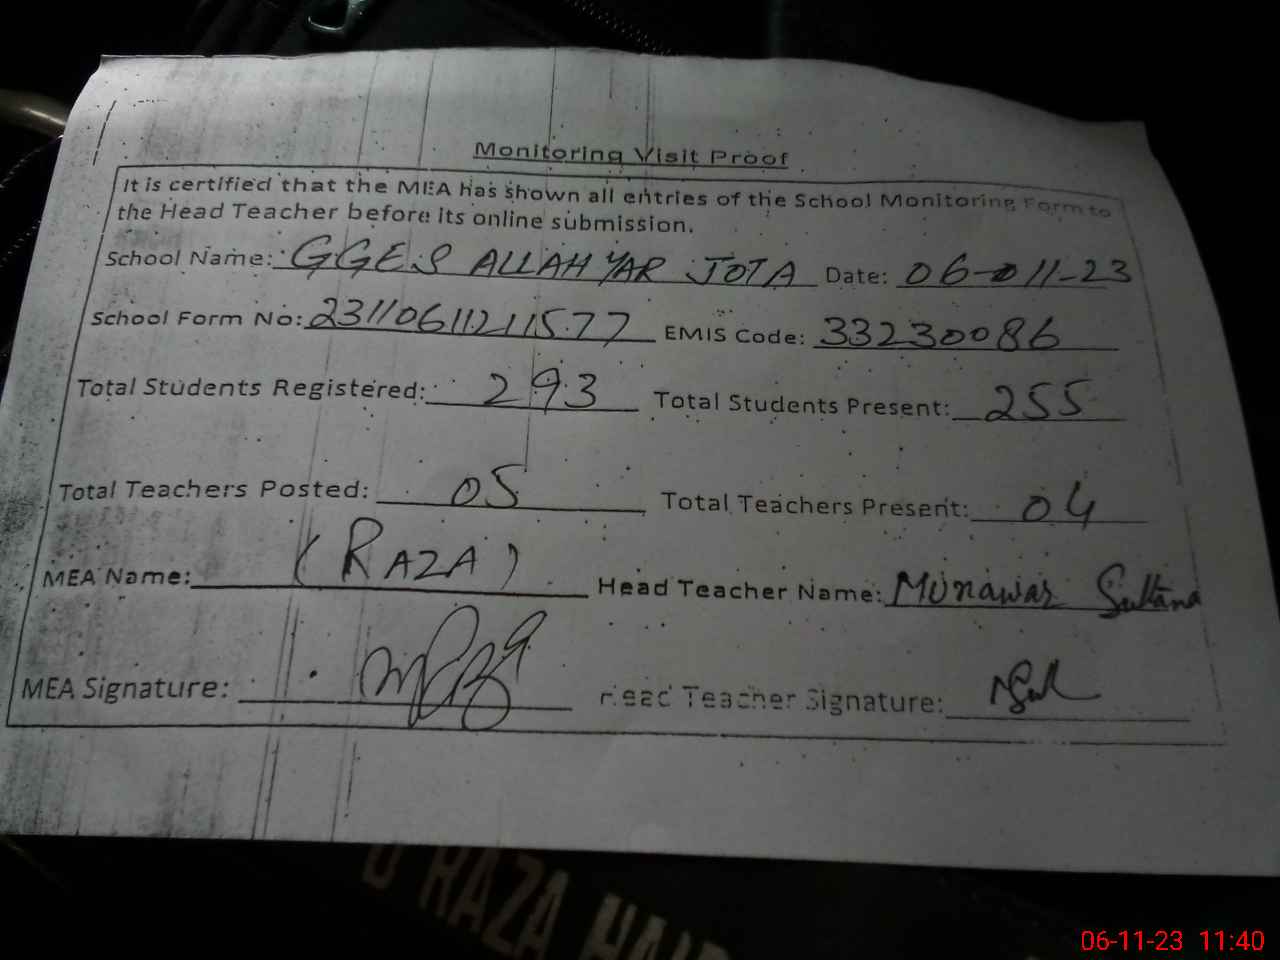 Monitoring Visit Proof
It is certified that the MEA has shown all entries of the School Monitoring Form to
the Head Teacher before its online submission.
School Name: GGES ALLAH YAR JOTA Date: 06-011-23
School Form No: 23110611211577 EMIS Code: 33230086
Total Students Registered: 293 Total Students Present: 255
Total Teachers Posted: 05 Total Teachers Present: 04
MEA Name: (RAZA) Head Teacher Name: Munawar Sultana
MEA Signature: Head Teacher Signature:
RAZA
06-11-23 11:40